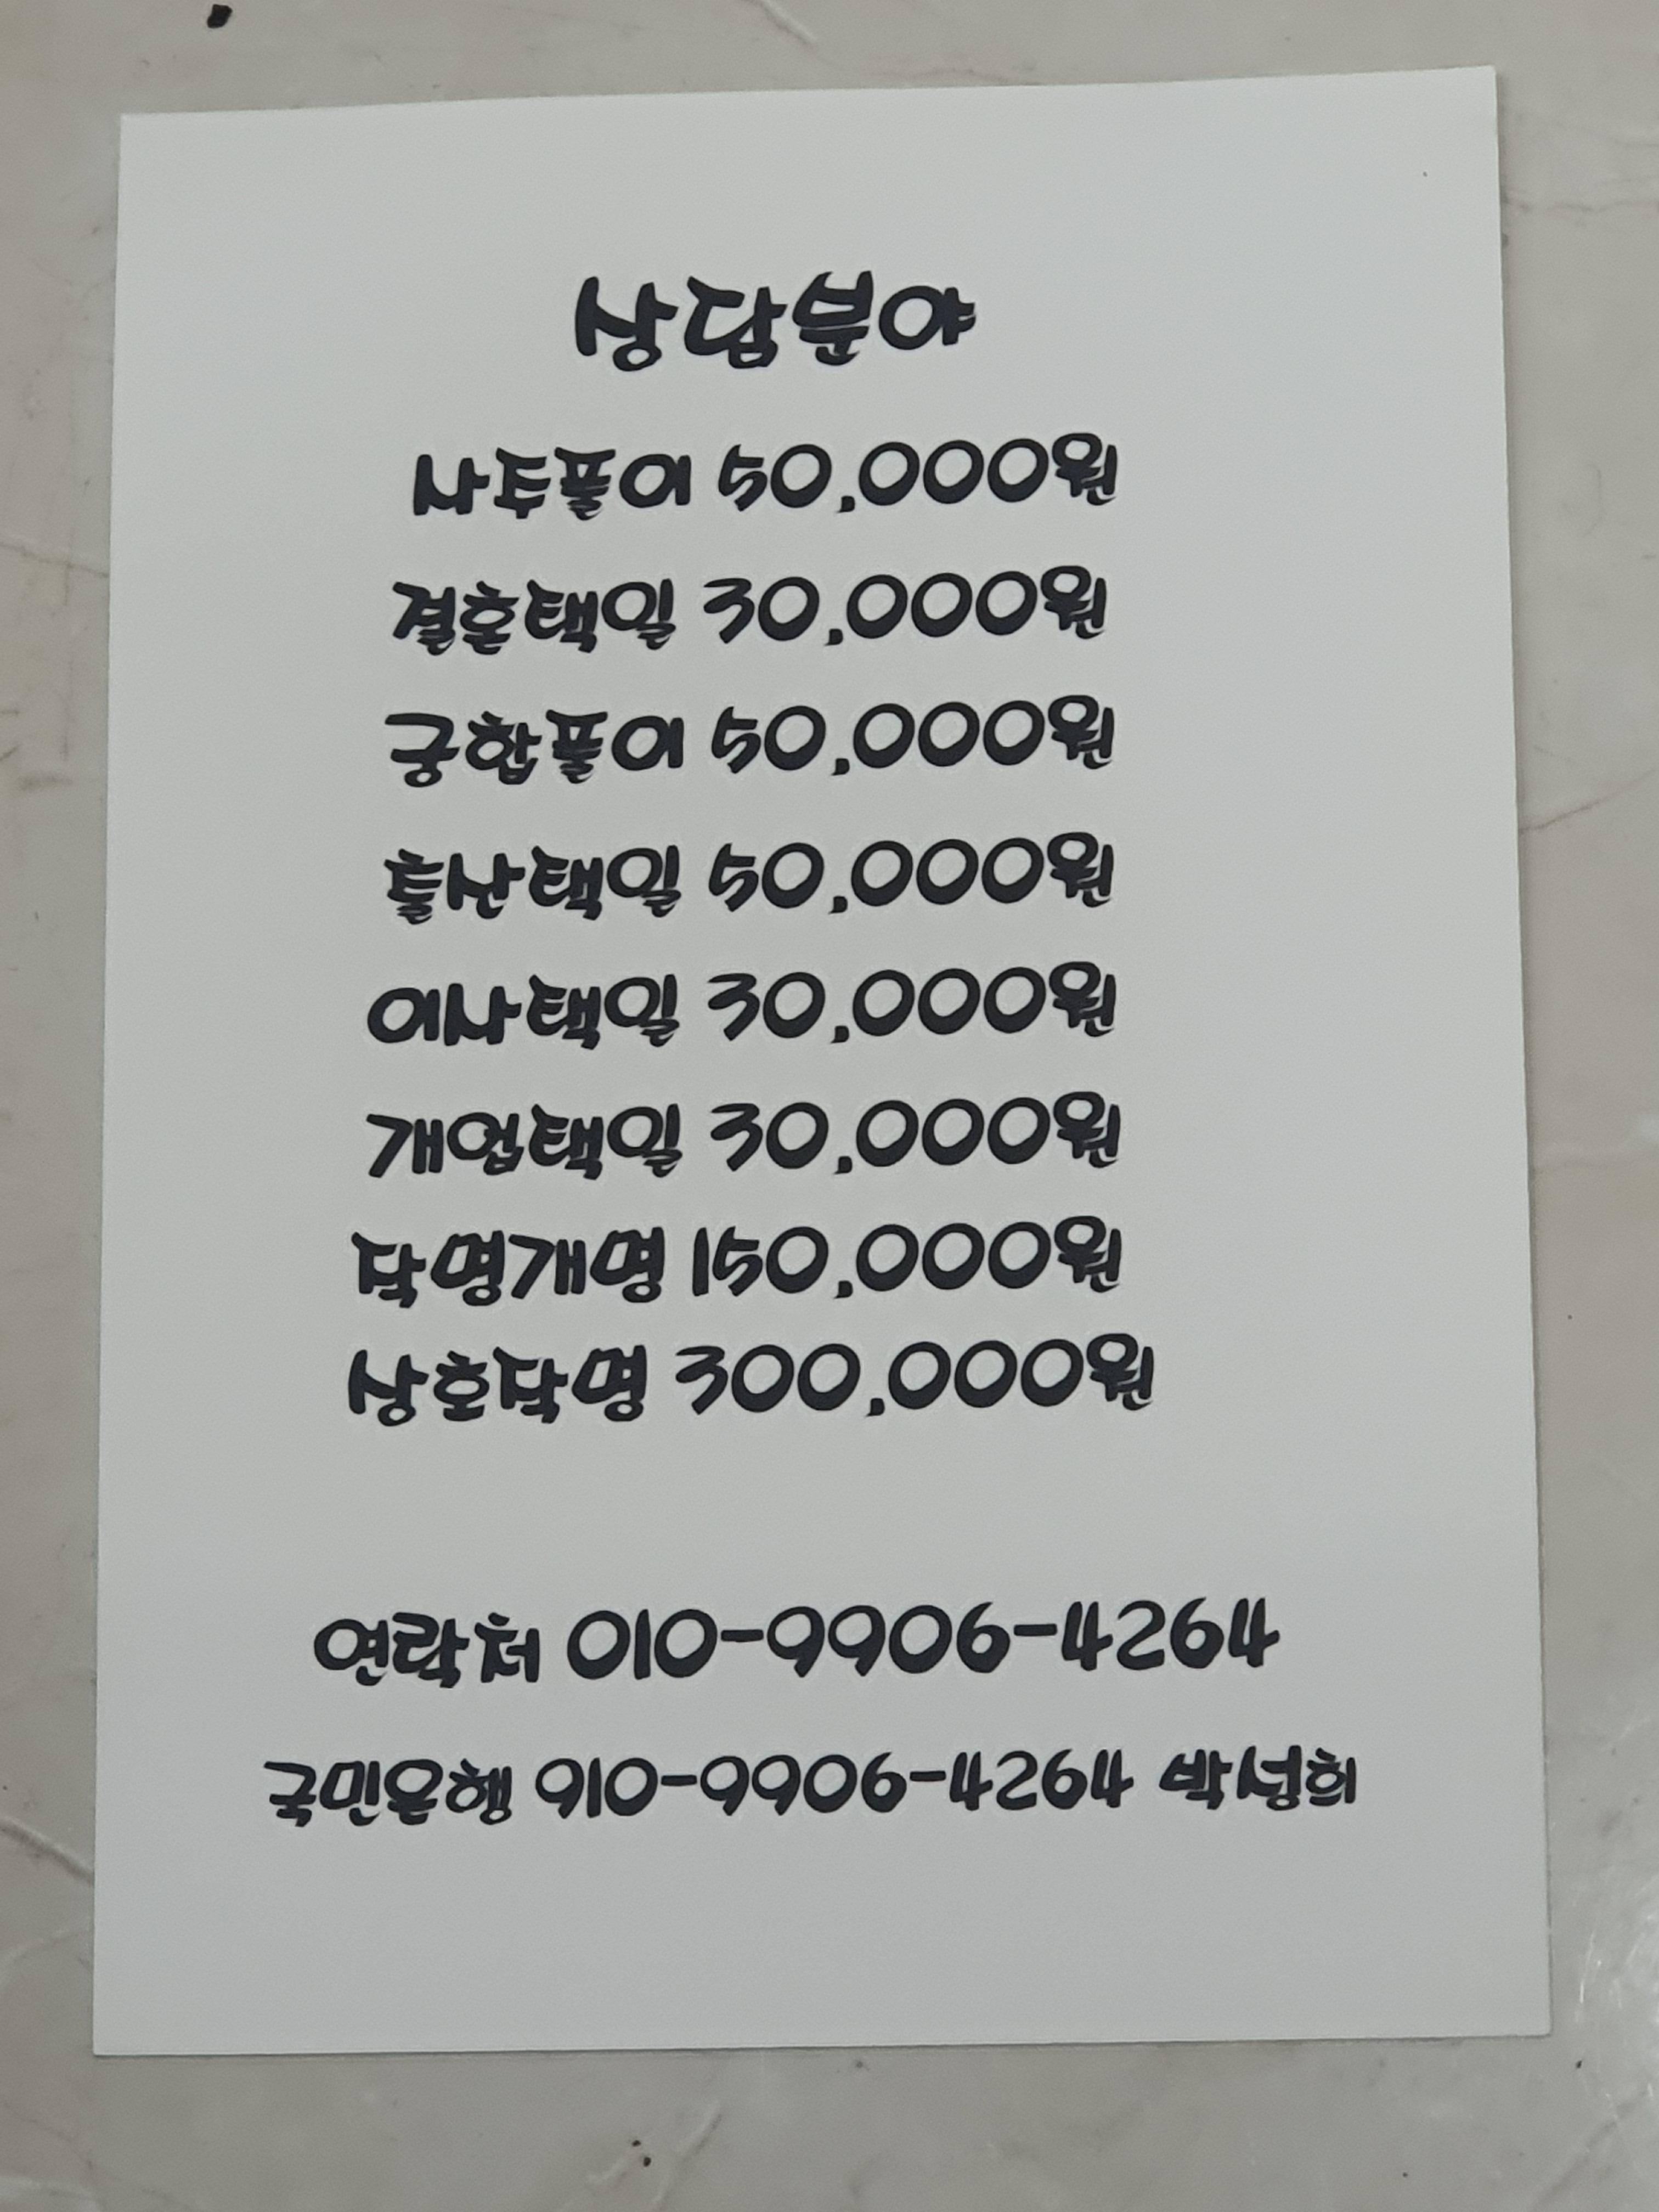 상담분야
사주풀이 50,000원
결혼택일 30,000원
궁합풀이 50,000원
출산택일 50,000원
이사택일 30,000원
개업택일 30,000원
작명개명 150,000원
상호작명 300,000원
연락처 010-9906-4264
국민은행 910-9906-4264 박성희